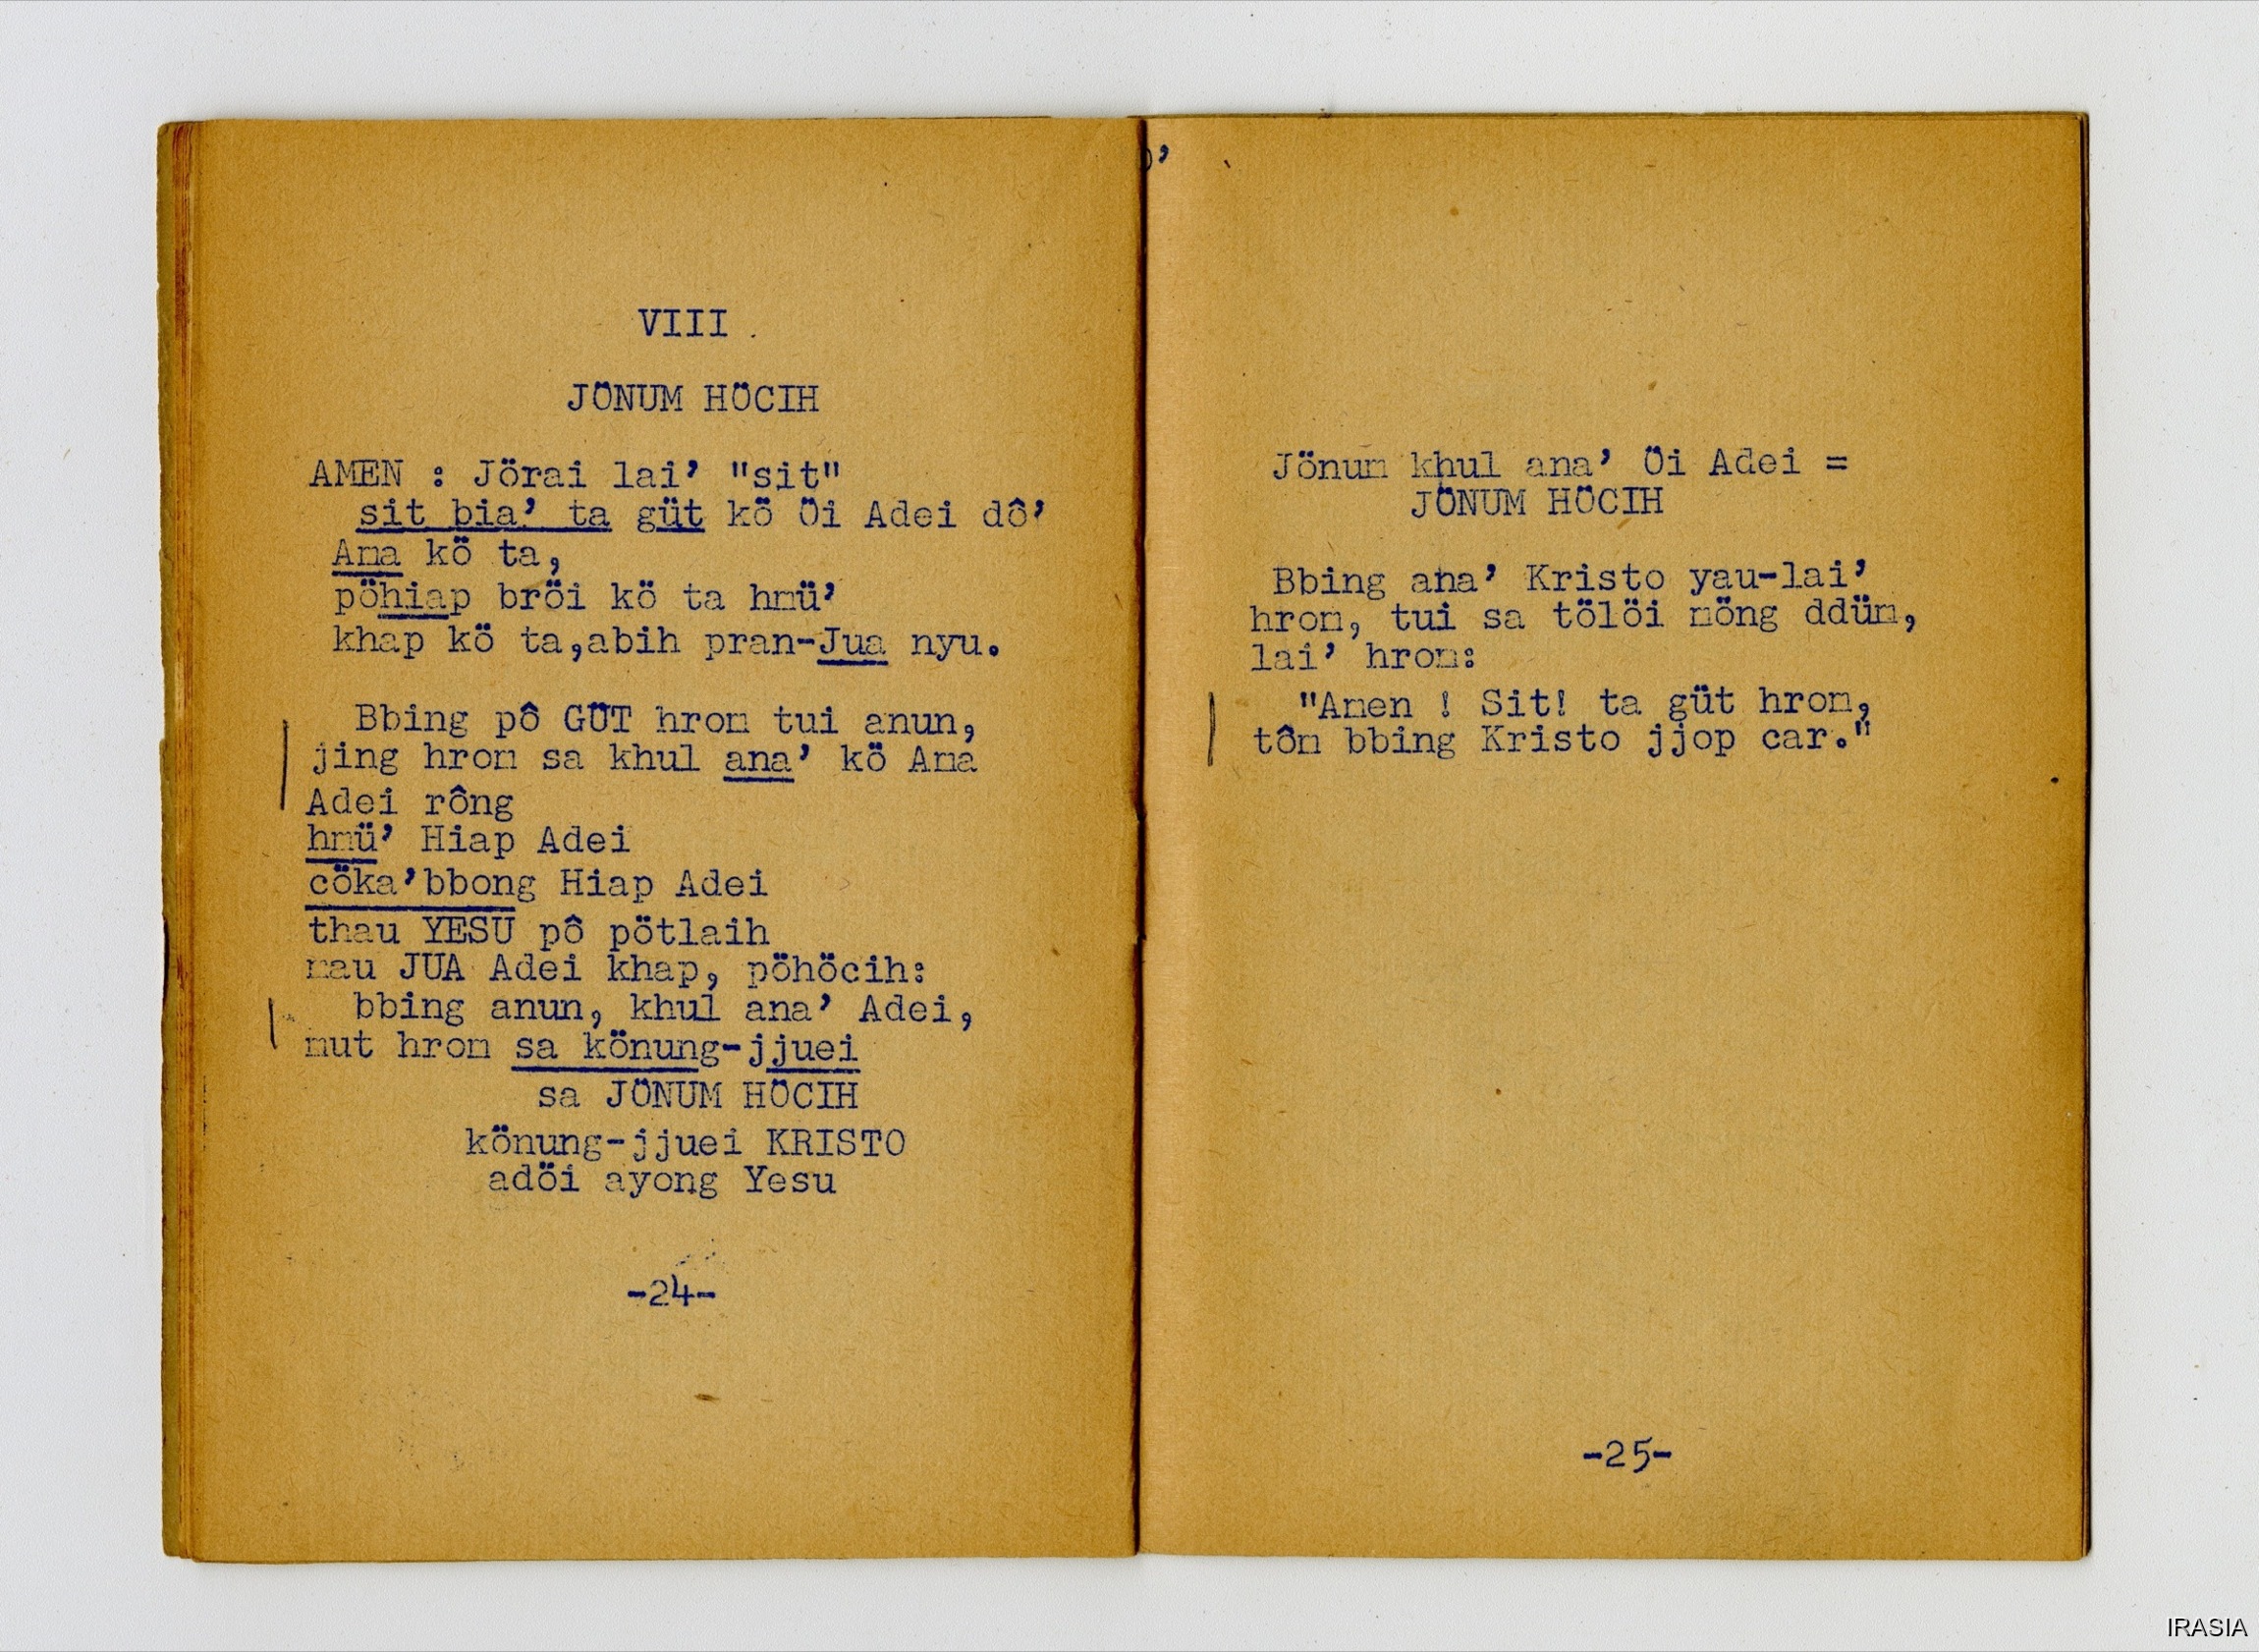 VIII
JÖNUM HÖCIH
AMEN : Jörai lai’ "sit"
sit bia’ ta güt kö Öi Adei dô’
Ama kö ta,
pöhiap bröi kö ta hmü’
khap kö ta,abih pran-Jua nyu.
Bbing pô GÜT hrom tui anun,
jing hrom sa khul ana’ kö Ama
Adei rông
hmü’ Hiap Adei
cöka’bbong Hiap Adei
thau YESU pô pötlaih
mau JUA Adei khap, pöhöcih:
bbing anun, khul ana’ Adei,
mut hrom sa könung-jjuei
sa JÖNUM HÖCIH
könung-jjuei KRISTO
adöi ayong Yesu
-24-
Jönum khul ana’ Öi Adei =
JÖNUM HÖCIH
Bbing ana’ Kristo yau-lai’
hrom, tui sa tölöi nöng ddüm,
lai’ hrom:
"Amen ! Sit! ta güt hrom,
tôm bbing Kristo jjop car."
-25-
IRASIA